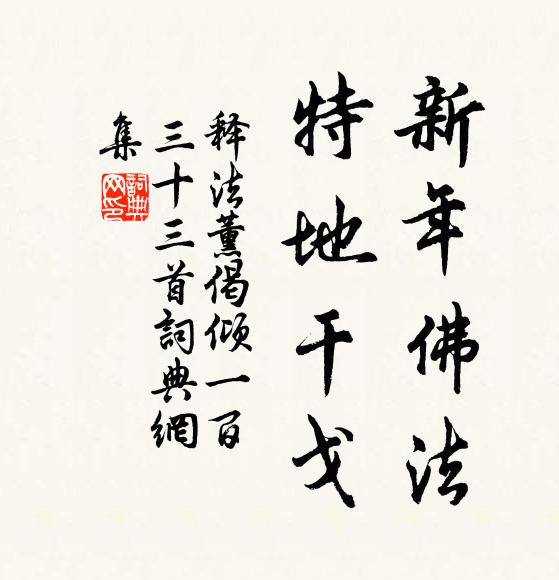 新年佛法
特地干戈
释法薰偈倾一百
三十三首詞典網
集
詞典
网印